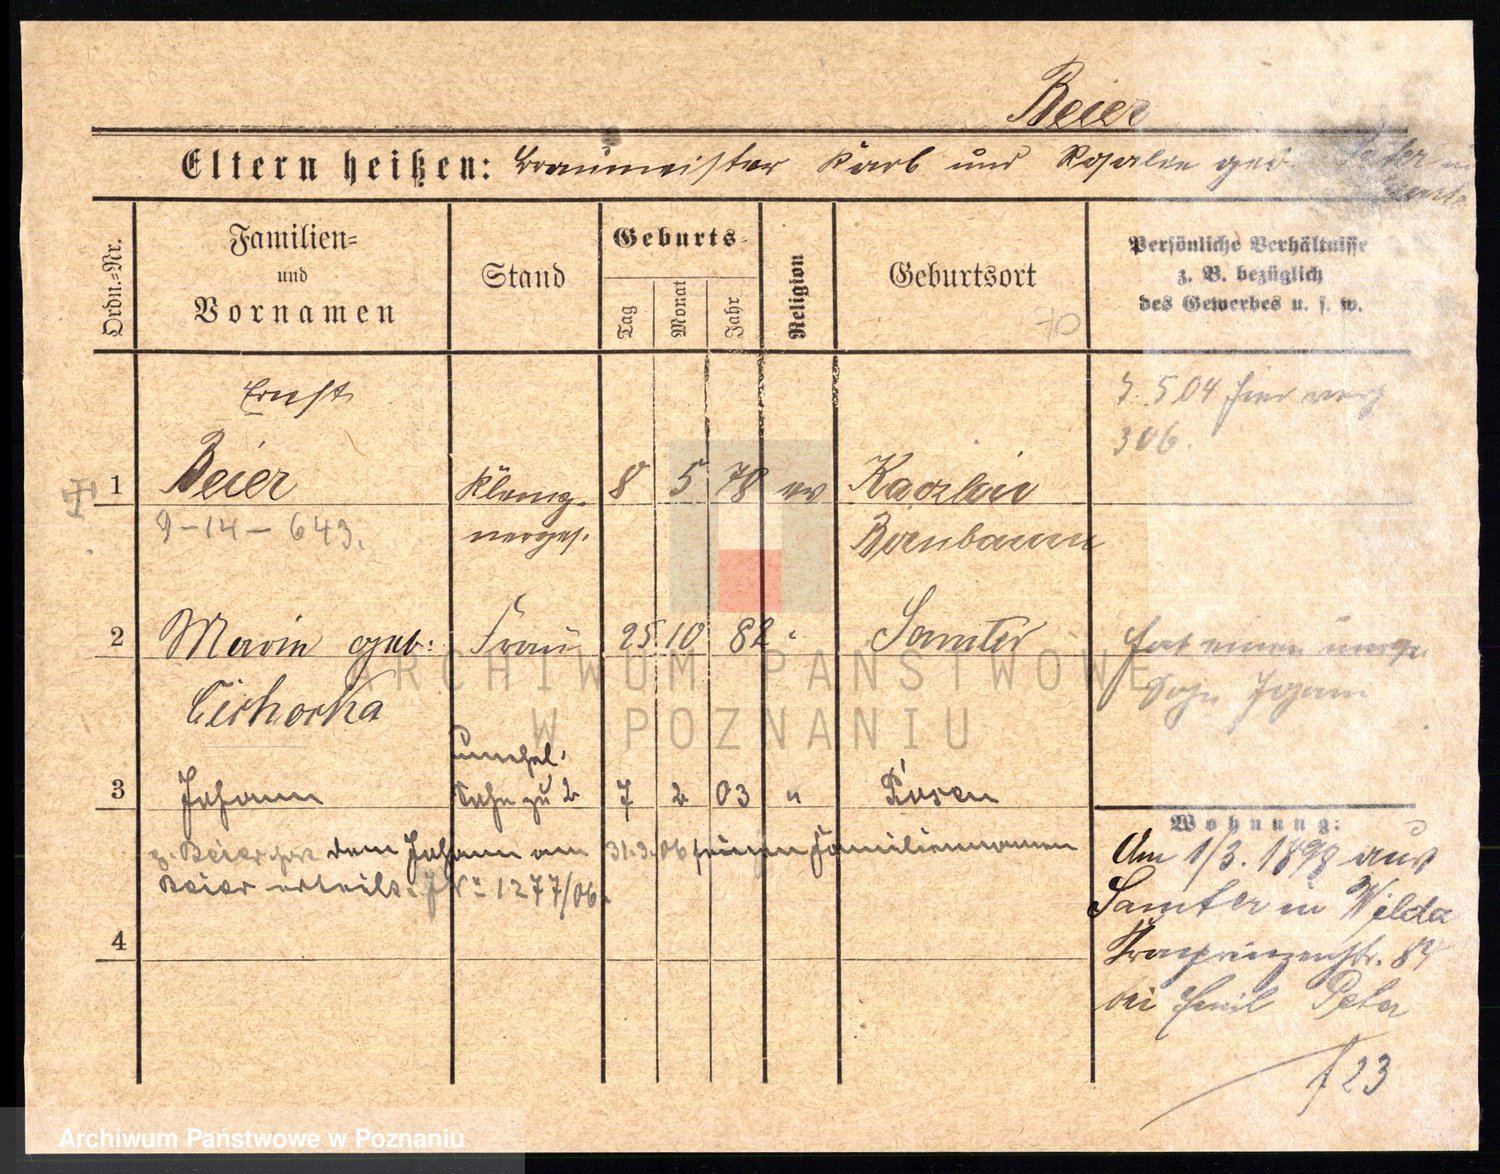 Beier
Eltern heißen: Braumeister Karl und Rosalie geb. Peter
Ordn.-Nr.
Familien-
und
Vornamen
Stand
Geburts-
Tag
Monat
Jahr
Religion
Geburtsort
70
Persönliche Verhältnisse
z. B. bezüglich
des Gewerbes u. s. w.
Ernst
5 04 hier
306.
1 Beier Klemp- 8 5 78 ev
9-14-643. Birnbaum
2 Marie geb: Frau 25 10 82 " Samter
hat einen
Sohn Johann
Cichocka
unehel.
3 Johann Sohn zu 2 7 2 03 " Posen
Beier hat dem Johann am 31.3.06 seinen Familiennamen
Beier erteilt. J No 1277/06.
4
Wohnung:
Am 1/3. 1898 aus
Samter in Wilda
Kronprinzenstr. 84
bei Emil Peter
23
ARCHIWUM PAŃSTWOWE
W POZNANIU
Archiwum Państwowe w Poznaniu